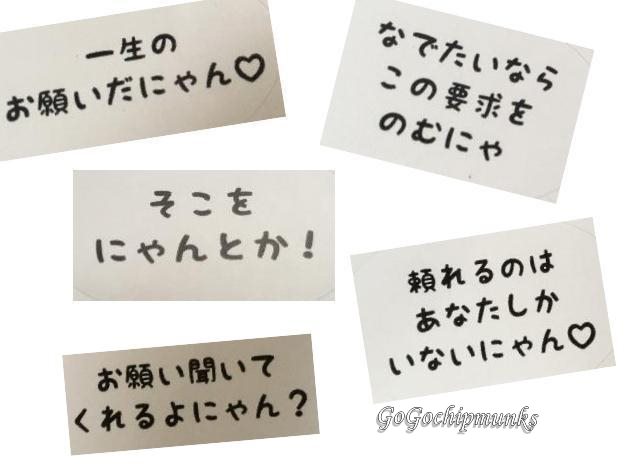 一生の
お願いだにゃん♡
なでたいなら
この要求を
のむにゃ
そこを
にゃんとか！
頼れるのは
あなたしか
いないにゃん♡
お願い聞いて
くれるよにゃん？
GoGochipmunks